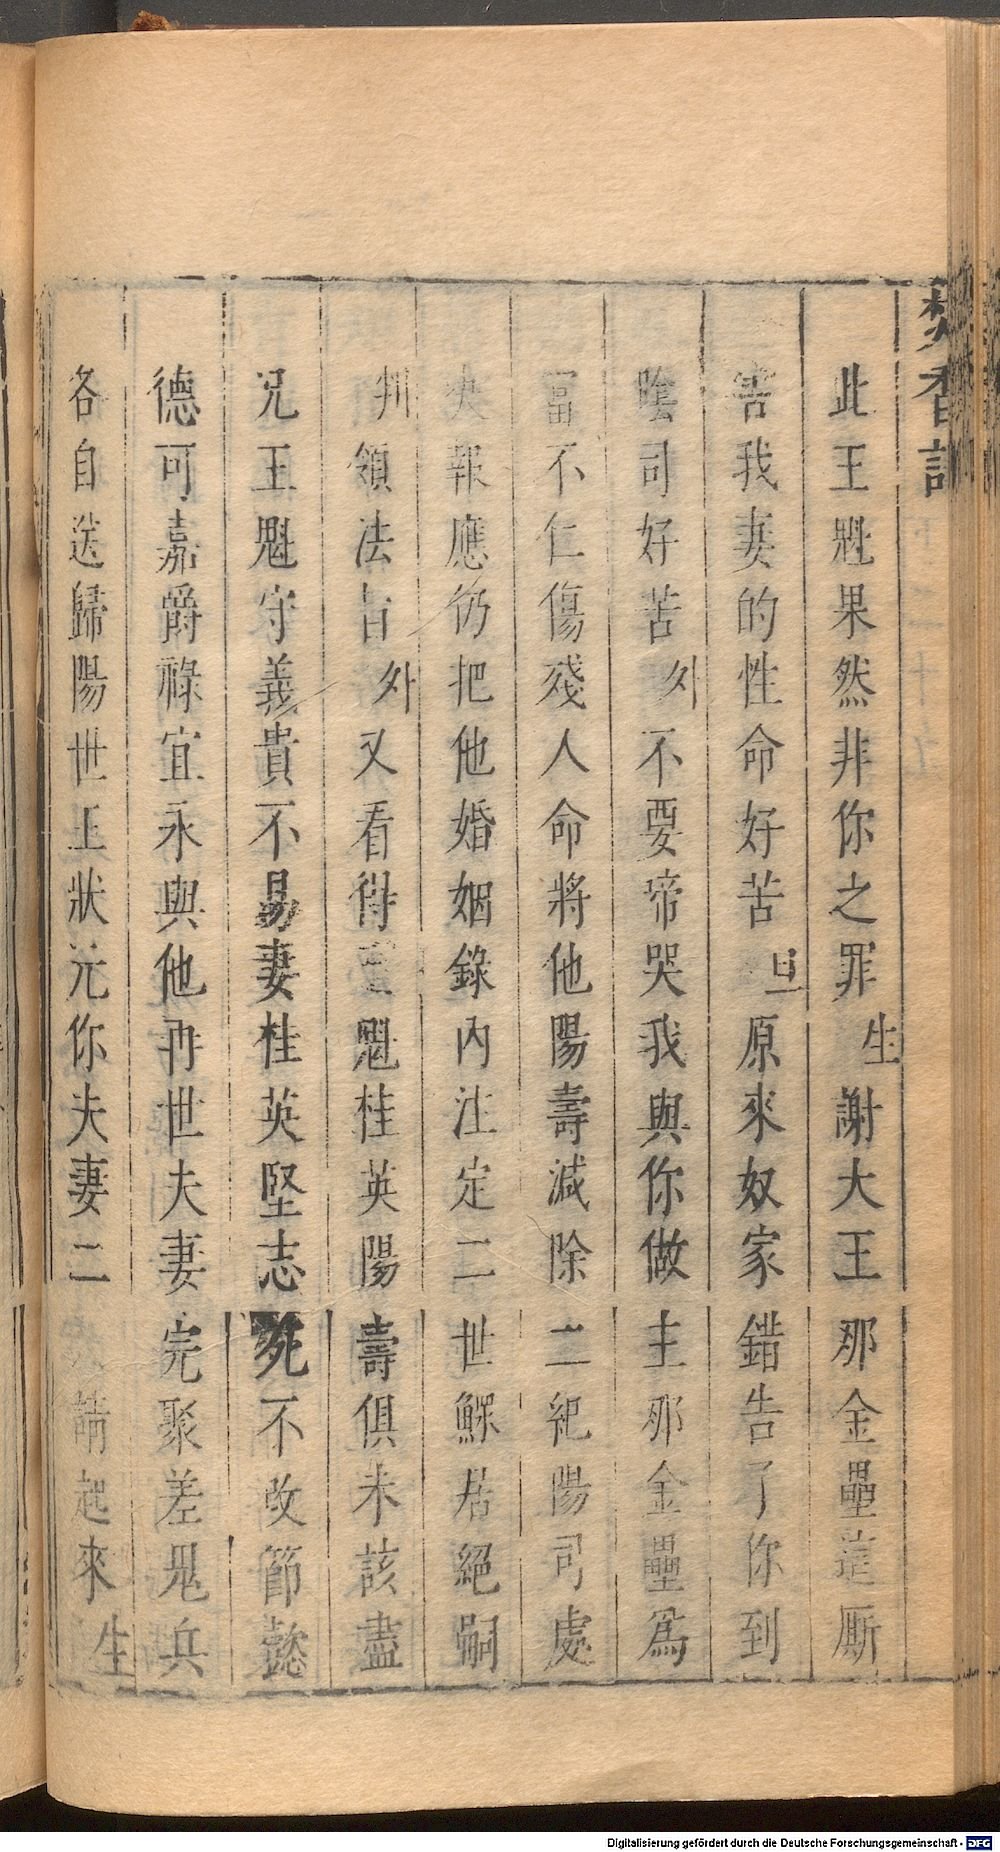 焚香記
此王魁果然非你之罪生謝大王那金壘這厮
害我妻的性命好苦旦原來奴家錯告了你到
陰司好苦外不要啼哭我與你做主那金壘爲
富不仁傷殘人命將他陽壽減除二紀陽司處
決報應仍把他婚姻錄內注定二世鰥居絕嗣
判領法旨外又看得王魁桂英陽壽俱未該盡
况王魁守義貴不易妻桂英堅志死不改節懿
德可嘉爵祿宜永與他再世夫妻完聚差鬼兵
各自送歸陽世王狀元你夫妻二請起來生
Digitalisierung gefördert durch die Deutsche Forschungsgemeinschaft - DFG